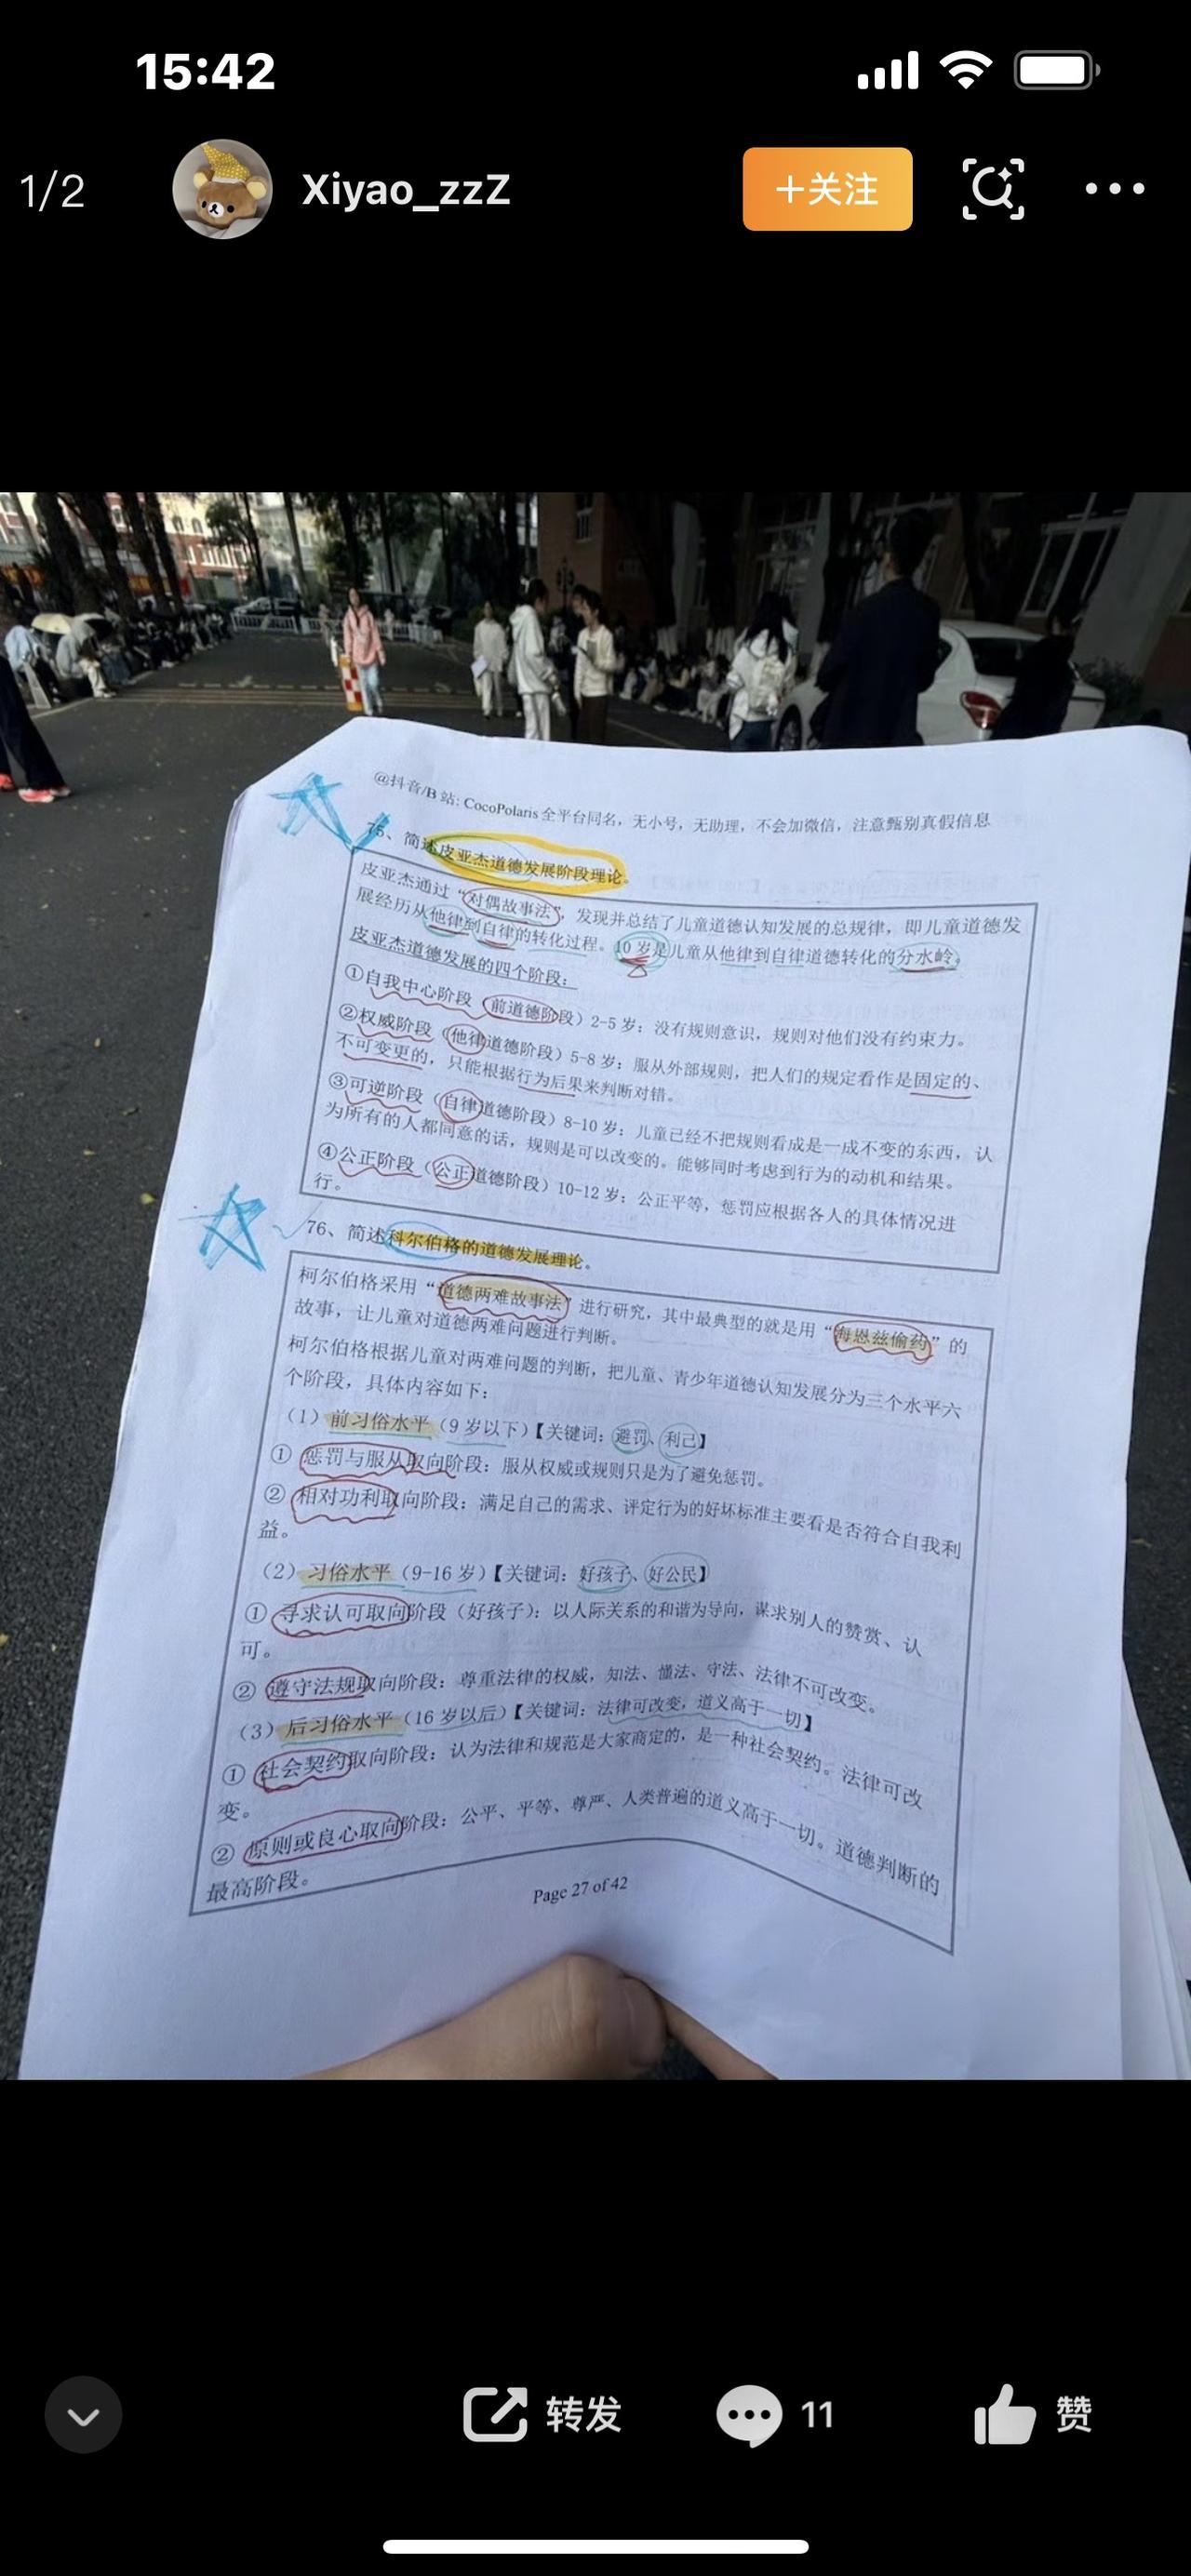 15:42
1/2
Xiyao_zzZ
+关注
@抖音/B站: CocoPolaris 全平台同名，无小号，无助理，不会加微信，注意甄别真假信息
75、简述皮亚杰道德发展阶段理论。
皮亚杰通过“对偶故事法”，发现并总结了儿童道德认知发展的总规律，即儿童道德发
展经历从他律到自律的转化过程。10岁是儿童从他律到自律道德转化的分水岭。
皮亚杰道德发展的四个阶段：
①自我中心阶段（前道德阶段）2-5岁：没有规则意识，规则对他们没有约束力。
②权威阶段（他律道德阶段）5-8岁：服从外部规则，把人们的规定看作是固定的、
不可变更的，只能根据行为后果来判断对错。
③可逆阶段（自律道德阶段）8-10岁：儿童已经不把规则看成是一成不变的东西，认
为所有的人都同意的话，规则是可以改变的。能够同时考虑到行为的动机和结果。
④公正阶段（公正道德阶段）10-12岁：公正平等，惩罚应根据各人的具体情况进
行。
76、简述科尔伯格的道德发展理论。
柯尔伯格采用“道德两难故事法”进行研究，其中最典型的就是用“海恩兹偷药”的
故事，让儿童对道德两难问题进行判断。
柯尔伯格根据儿童对两难问题的判断，把儿童、青少年道德认知发展分为三个水平六
个阶段，具体内容如下：
（1）前习俗水平（9岁以下）【关键词：避罚、利己】
① 惩罚与服从取向阶段：服从权威或规则只是为了避免惩罚。
② 相对功利取向阶段：满足自己的需求、评定行为的好坏标准主要看是否符合自我利
益。
（2）习俗水平（9-16岁）【关键词：好孩子、好公民】
① 寻求认可取向阶段（好孩子）：以人际关系的和谐为导向，谋求别人的赞赏、认
可。
② 遵守法规取向阶段：尊重法律的权威，知法、懂法、守法、法律不可改变。
（3）后习俗水平（16岁以后）【关键词：法律可改变，道义高于一切】
① 社会契约取向阶段：认为法律和规范是大家商定的，是一种社会契约。法律可改
变。
② 原则或良心取向阶段：公平、平等、尊严、人类普遍的道义高于一切。道德判断的
最高阶段。
Page 27 of 42
转发
11
赞